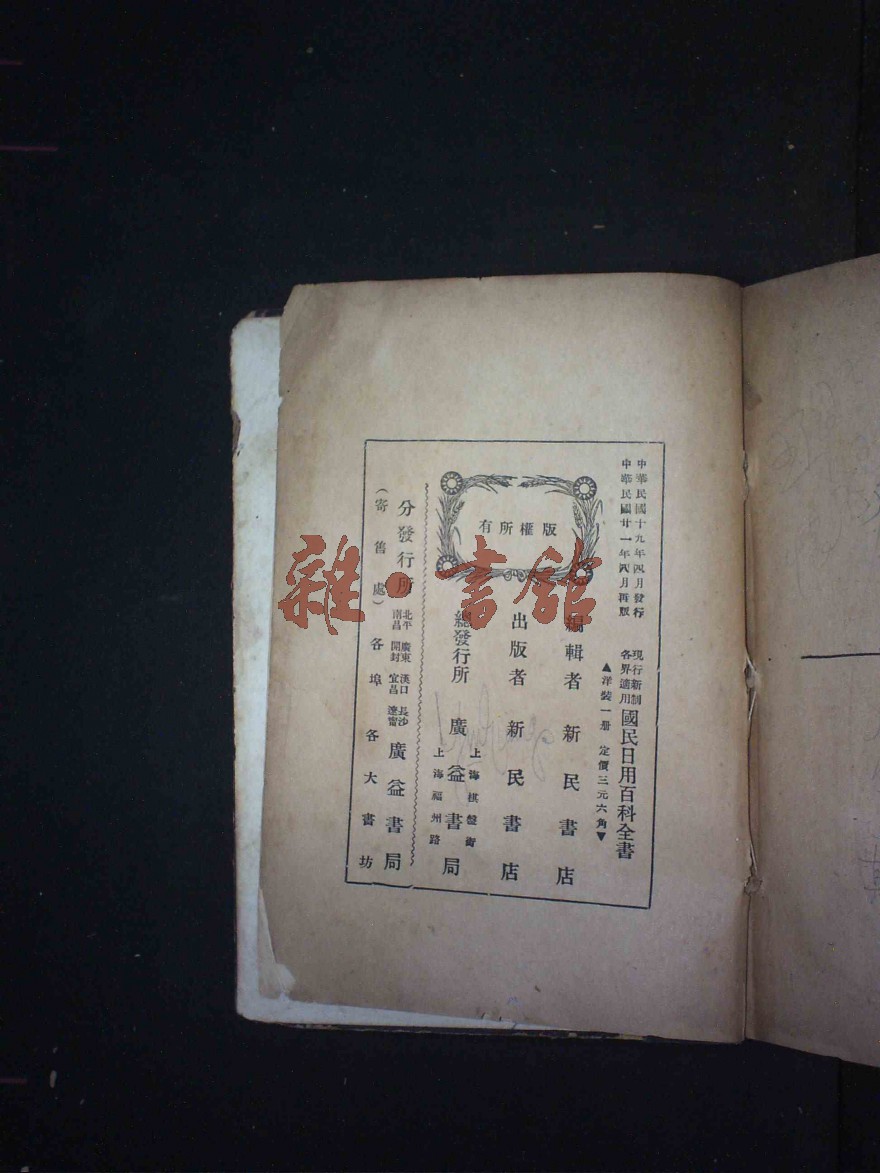 中華民國十九年四月發行
中華民國廿一年四月再版
現行新制
各界適用
國民日用百科全書
▲洋裝一册 定價三元六角▼
版權所有
編輯者 新民書店
出版者 新民書店
上海棋盤街
總發行所 廣益書局
上海福州路
分發行所
北平 廣東 漢口 長沙
南昌 開封 宜昌 遼寧
廣益書局
(寄售處) 各埠各大書坊
雜·書館